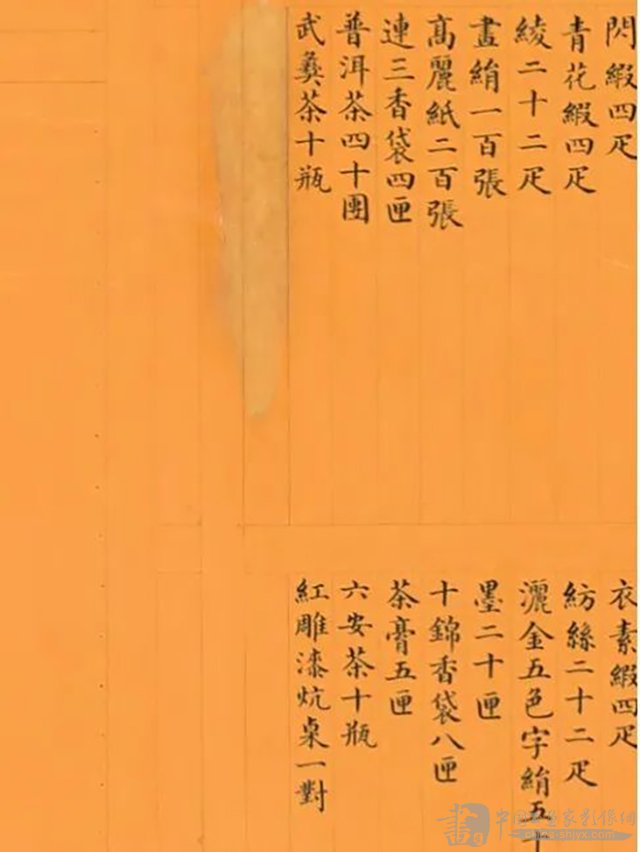 閃緞四疋
青花緞四疋
綾二十二疋
畫絹一百張
高麗紙二百張
連三香袋四匣
普洱茶四十團
武彝茶十瓶
衣素緞四疋
紡絲二十二疋
灑金五色字絹五十
墨二十匣
十錦香袋八匣
茶膏五匣
六安茶十瓶
紅雕漆炕桌一對